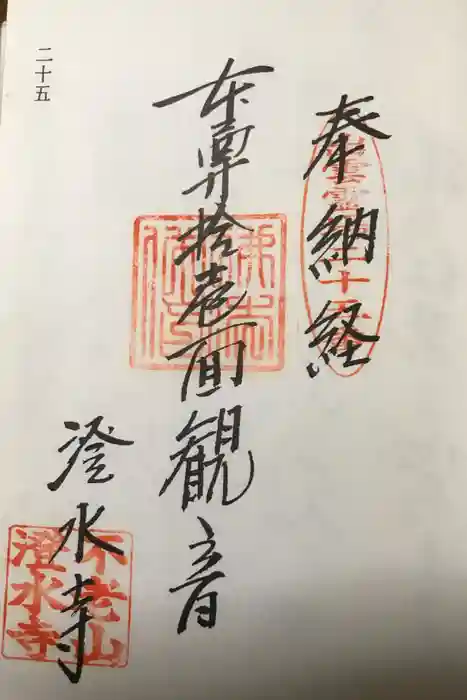 奉納経
本尊拾壱面観音
澄水寺
二十五
不老山
澄水寺